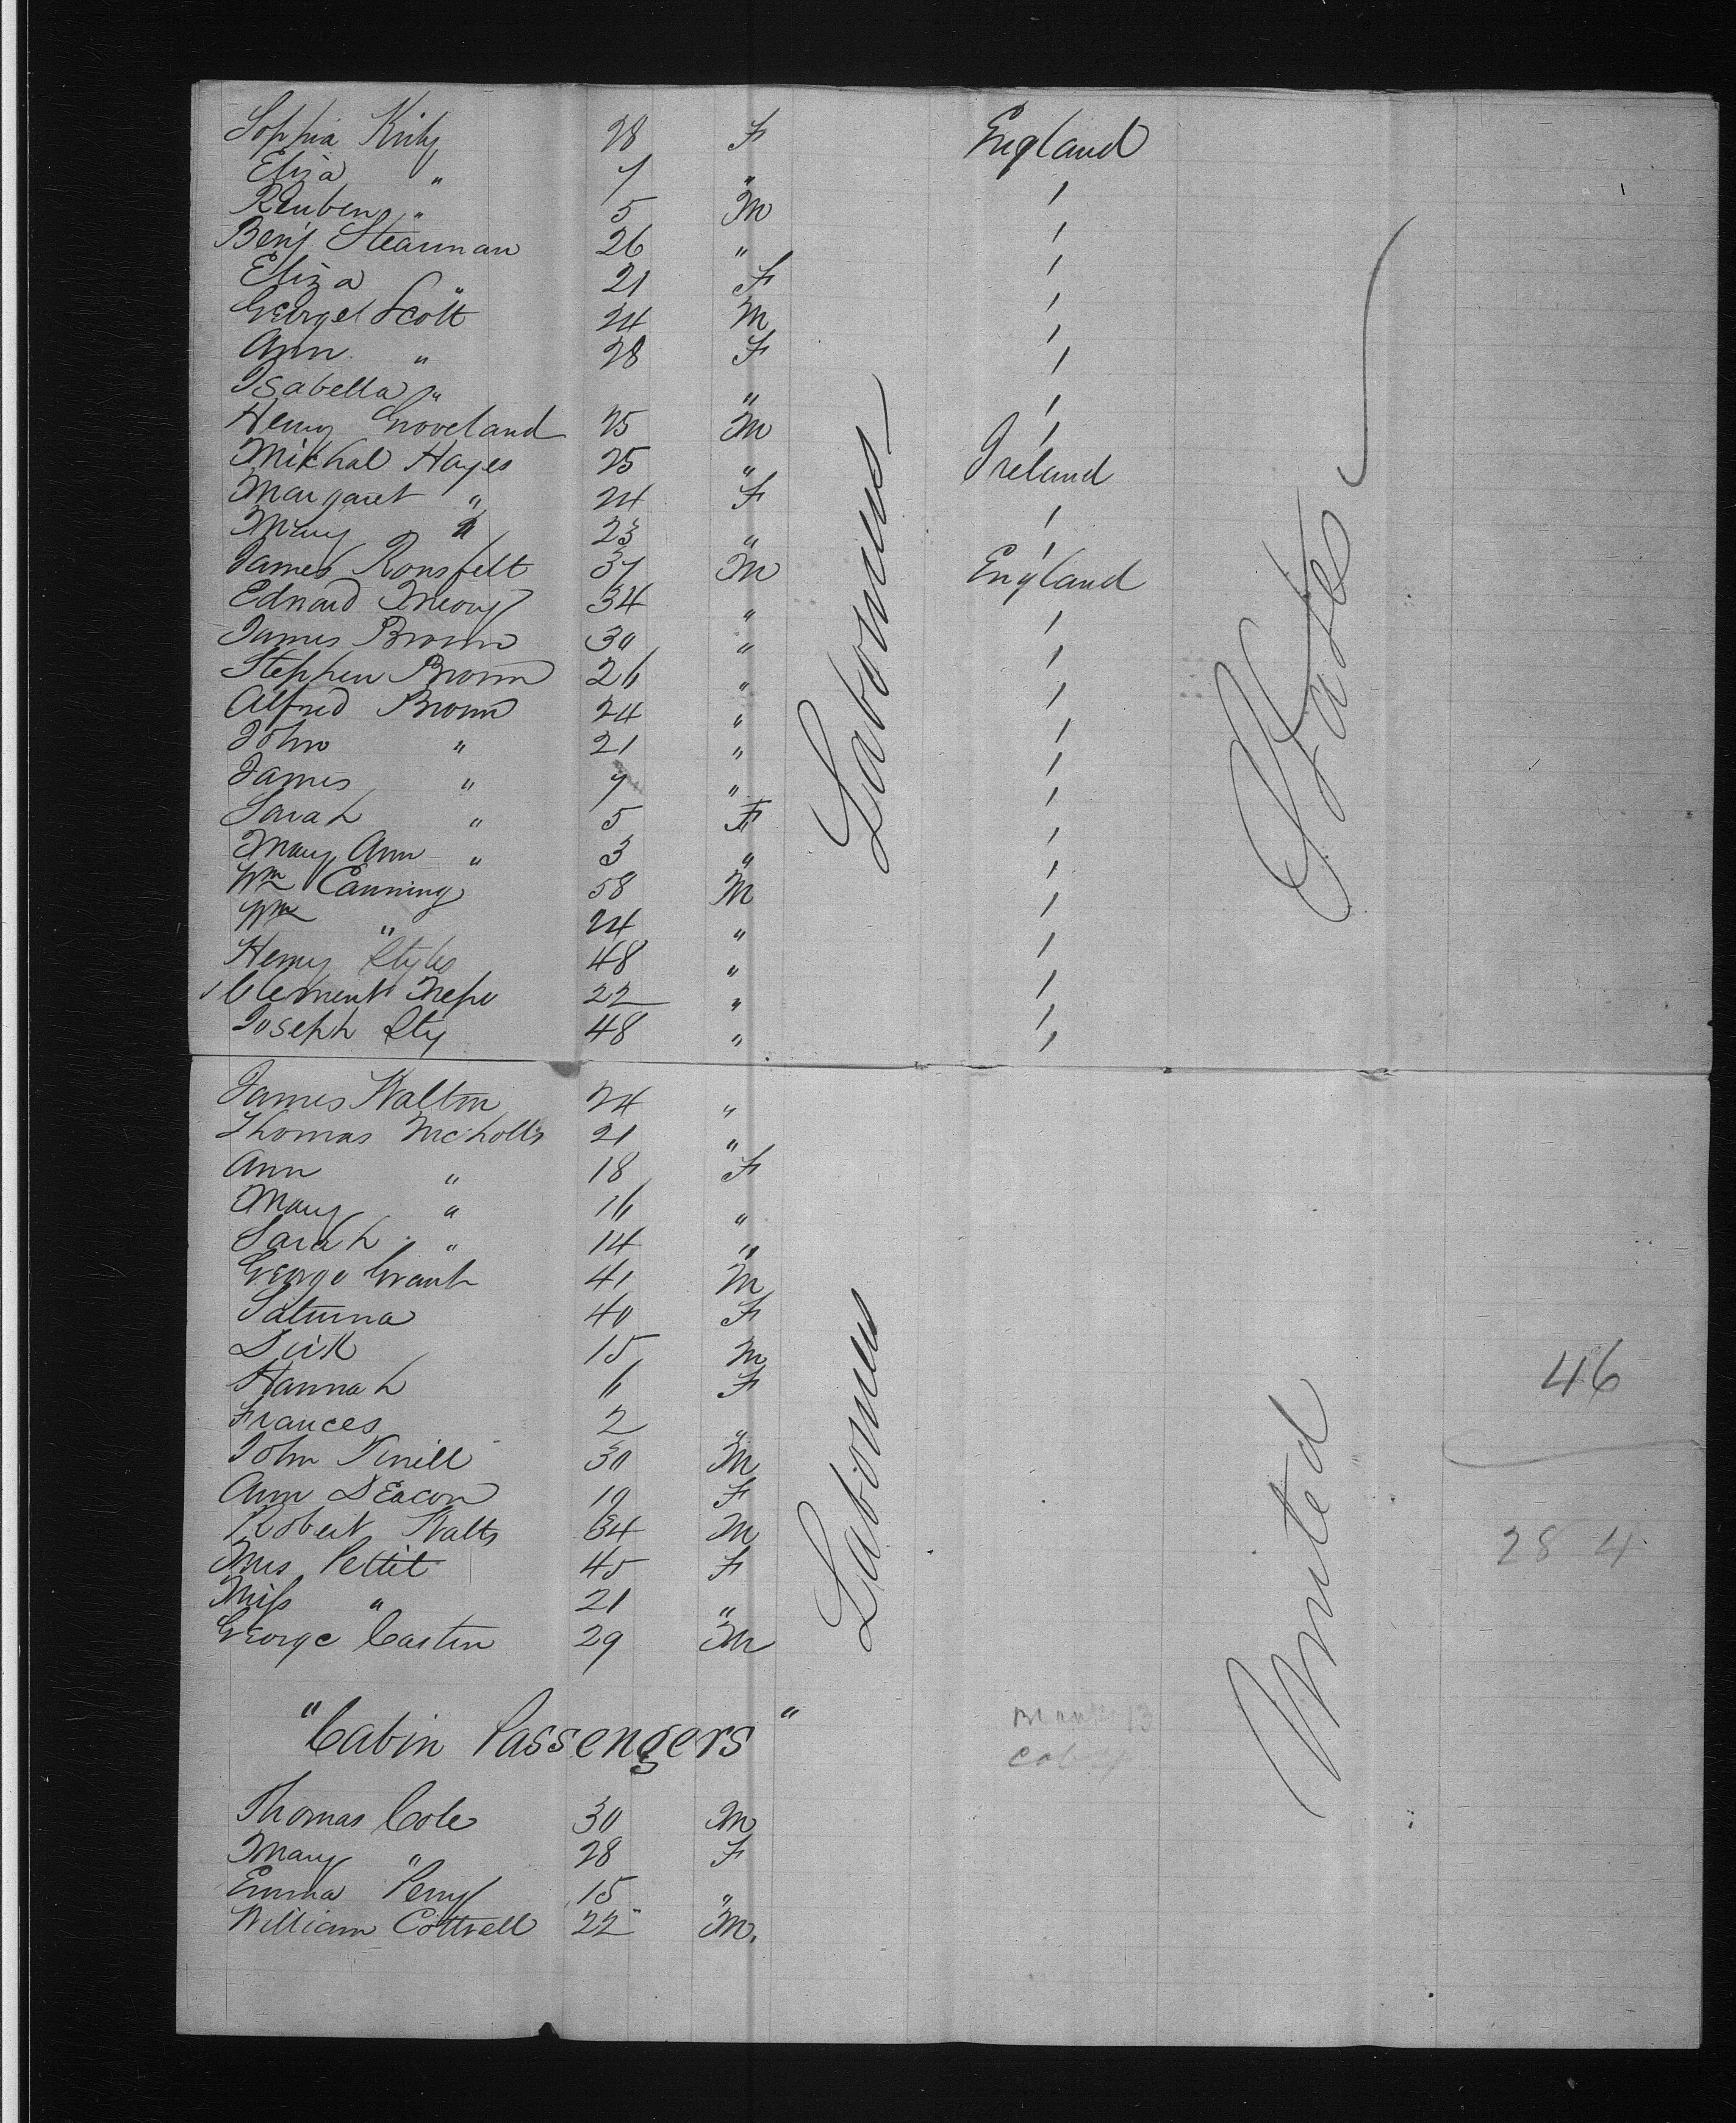 Sophia Kirby 28 F England
Eliza " 7 " "
Reuben " 5 M "
Benj Stearman 26 " "
Eliza " 21 F "
George Scott 24 M "
Ann " 28 F "
Isabella " " "
Henry Groveland 25 M "
Mikhal Hayes 25 " Ireland
Margaret " 24 F "
Mary " 23 " "
James Ronsfelt 37 M England
Edward 34 " "
James Brown 30 " "
Stephen Brown 26 " "
Alfred Brown 24 " "
John " 21 " "
James " 7 " "
Sarah " 5 F "
Mary Ann " 3 " "
Wm Canning 58 M "
Wm " 24 " "
Henry Styles 48 " "
Clement 22 " "
Joseph Sty 48 " "
Labourers
States
James Walton 24 "
Thomas Nicholls 21 "
Ann " 18 F
Mary " 16 "
Sarah " 14 "
George Grant 41 M
40 F
Dick 15 M
Hannah 6 F
Frances 2 "
John 30 M
Ann Deacon 19 F
Robert Watts 34 M
Mrs Pettit 45 F
Miss " 21 "
George Carter 29 M
Labourers
United
46
28 4
"Cabin Passengers"
Thomas Cole 30 M
Mary " 28 F
Emma Perry 15 "
William Cottrell 22 M.